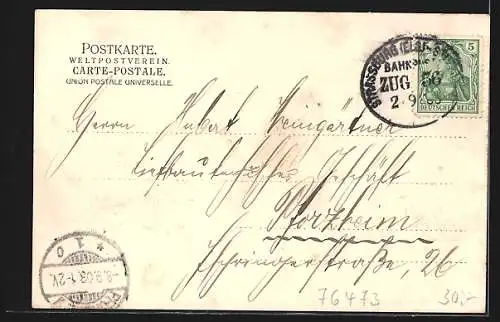 POSTKARTE.
WELTPOSTVEREIN.
CARTE-POSTALE.
UNION POSTALE UNIVERSELLE.
STRASSBURG (ELS)
BAHNPOST
ZUG 56
2 9
5
DEUTSCHES REICH
Herrn Hubert Weingärtner
Geschäft
Pforzheim
Zähringerstraße, 26
* 1 c
-8.9.03.1-2V.
76473
300,-